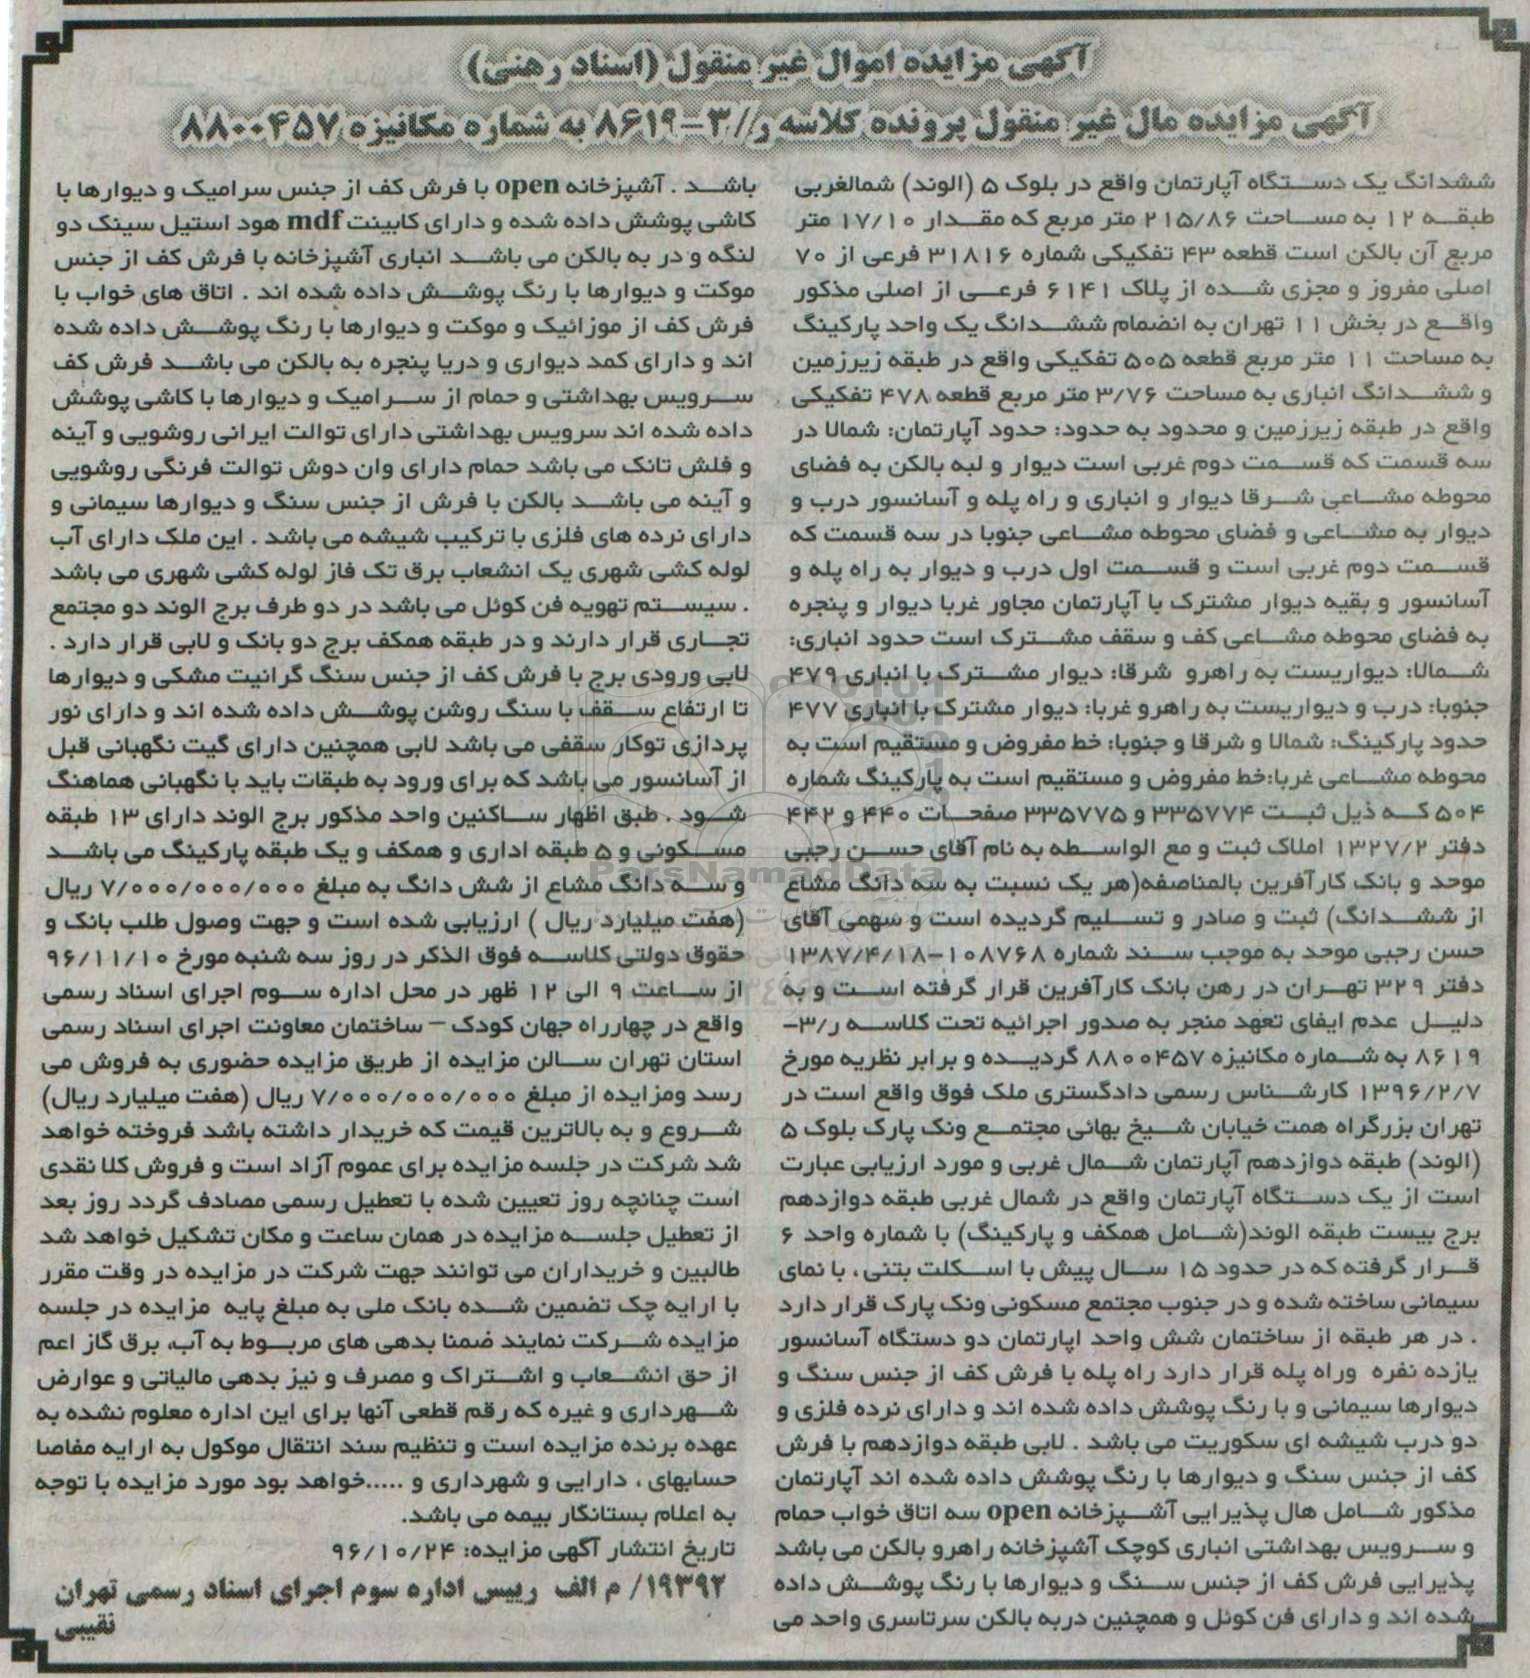 آگهی مزایده اموال غیر منقول (اسناد رهنی)
آگهی مزایده مال غیر منقول پرونده کلاسه ر/۳-۸۶۱۹ به شماره مکانیزه ۸۸۰۰۴۵۷
ششدانگ یک دستگاه آپارتمان واقع در بلوک ۵ (الوند) شمالغربی
طبقه ۱۲ به مساحت ۲۱۵/۸۶ متر مربع که مقدار ۱۷/۱۰ متر
مربع آن بالکن است قطعه ۴۳ تفکیکی شماره ۳۱۸۱۶ فرعی از ۷۰
اصلی مفروز و مجزی شده از پلاک ۶۱۴۱ فرعی از اصلی مذکور
واقع در بخش ۱۱ تهران به انضمام ششدانگ یک واحد پارکینگ
به مساحت ۱۱ متر مربع قطعه ۵۰۵ تفکیکی واقع در طبقه زیرزمین
و ششدانگ انباری به مساحت ۳/۷۶ متر مربع قطعه ۴۷۸ تفکیکی
واقع در طبقه زیرزمین و محدود به حدود: حدود آپارتمان: شمالا در
سه قسمت که قسمت دوم غربی است دیوار و لبه بالکن به فضای
محوطه مشاعی شرقا دیوار و انباری و راه پله و آسانسور درب و
دیوار به مشاعی و فضای محوطه مشاعی جنوبا در سه قسمت که
قسمت دوم غربی است و قسمت اول درب و دیوار به راه پله و
آسانسور و بقیه دیوار مشترک با آپارتمان مجاور غربا دیوار و پنجره
به فضای محوطه مشاعی کف و سقف مشترک است حدود انباری:
شمالا: دیواریست به راهرو شرقا: دیوار مشترک با انباری ۴۷۹
جنوبا: درب و دیواریست به راهرو غربا: دیوار مشترک با انباری ۴۷۷
حدود پارکینگ: شمالا و شرقا و جنوبا: خط مفروض و مستقیم است به
محوطه مشاعی غربا:خط مفروض و مستقیم است به پارکینگ شماره
۵۰۴ که ذیل ثبت ۳۳۵۷۷۴ و ۳۳۵۷۷۵ صفحات ۴۴۰ و ۴۴۲
دفتر ۱۳۲۷/۲ املاک ثبت و مع الواسطه به نام آقای حسن رجبی
موحد و بانک کارآفرین بالمناصفه(هر یک نسبت به سه دانگ مشاع
از ششدانگ) ثبت و صادر و تسلیم گردیده است و سهمی آقای
حسن رجبی موحد به موجب سند شماره ۱۰۸۷۶۸-۱۳۸۷/۴/۱۸
دفتر ۳۲۹ تهران در رهن بانک کارآفرین قرار گرفته است و به
دلیل عدم ایفای تعهد منجر به صدور اجرائیه تحت کلاسه ر/۳-
۸۶۱۹ به شماره مکانیزه ۸۸۰۰۴۵۷ گردیده و برابر نظریه مورخ
۱۳۹۶/۲/۷ کارشناس رسمی دادگستری ملک فوق واقع است در
تهران بزرگراه همت خیابان شیخ بهائی مجتمع ونک پارک بلوک ۵
(الوند) طبقه دوازدهم آپارتمان شمال غربی و مورد ارزیابی عبارت
است از یک دستگاه آپارتمان واقع در شمال غربی طبقه دوازدهم
برج بیست طبقه الوند(شامل همکف و پارکینگ) با شماره واحد ۶
قرار گرفته که در حدود ۱۵ سال پیش با اسکلت بتنی، با نمای
سیمانی ساخته شده و در جنوب مجتمع مسکونی ونک پارک قرار دارد
. در هر طبقه از ساختمان شش واحد اپارتمان دو دستگاه آسانسور
یازده نفره وراه پله قرار دارد راه پله با فرش کف از جنس سنگ و
دیوارها سیمانی و با رنگ پوشش داده شده اند و دارای نرده فلزی و
دو درب شیشه ای سکوریت می باشد . لابی طبقه دوازدهم با فرش
کف از جنس سنگ و دیوارها با رنگ پوشش داده شده اند آپارتمان
مذکور شامل هال پذیرایی آشپزخانه open سه اتاق خواب حمام
و سرویس بهداشتی انباری کوچک آشپزخانه راهرو بالکن می باشد
پذیرایی فرش کف از جنس سنگ و دیوارها با رنگ پوشش داده
شده اند و دارای فن کوئل و همچنین دربه بالکن سرتاسری واحد می
باشد . آشپزخانه open با فرش کف از جنس سرامیک و دیوارها با
کاشی پوشش داده شده و دارای کابینت mdf هود استیل سینک دو
لنگه و در به بالکن می باشد انباری آشپزخانه با فرش کف از جنس
موکت و دیوارها با رنگ پوشش داده شده اند . اتاق های خواب با
فرش کف از موزائیک و موکت و دیوارها با رنگ پوشش داده شده
اند و دارای کمد دیواری و دریا پنجره به بالکن می باشد فرش کف
سرویس بهداشتی و حمام از سرامیک و دیوارها با کاشی پوشش
داده شده اند سرویس بهداشتی دارای توالت ایرانی روشویی و آینه
و فلش تانک می باشد حمام دارای وان دوش توالت فرنگی روشویی
و آینه می باشد بالکن با فرش از جنس سنگ و دیوارها سیمانی و
دارای نرده های فلزی با ترکیب شیشه می باشد . این ملک دارای آب
لوله کشی شهری یک انشعاب برق تک فاز لوله کشی شهری می باشد
. سیستم تهویه فن کوئل می باشد در دو طرف برج الوند دو مجتمع
تجاری قرار دارند و در طبقه همکف برج دو بانک و لابی قرار دارد .
لابی ورودی برج با فرش کف از جنس سنگ گرانیت مشکی و دیوارها
تا ارتفاع سقف با سنگ روشن پوشش داده شده اند و دارای نور
پردازی توکار سقفی می باشد لابی همچنین دارای گیت نگهبانی قبل
از آسانسور می باشد که برای ورود به طبقات باید با نگهبانی هماهنگ
شود . طبق اظهار ساکنین واحد مذکور برج الوند دارای ۱۳ طبقه
مسکونی و ۵ طبقه اداری و همکف و یک طبقه پارکینگ می باشد
و سه دانگ مشاع از شش دانگ به مبلغ ۷/۰۰۰/۰۰۰/۰۰۰ ریال
(هفت میلیارد ریال ) ارزیابی شده است و جهت وصول طلب بانک و
حقوق دولتی کلاسه فوق الذکر در روز سه شنبه مورخ ۹۶/۱۱/۱۰
از ساعت ۹ الی ۱۲ ظهر در محل اداره سوم اجرای اسناد رسمی
واقع در چهارراه جهان کودک – ساختمان معاونت اجرای اسناد رسمی
استان تهران سالن مزایده از طریق مزایده حضوری به فروش می
رسد ومزایده از مبلغ ۷/۰۰۰/۰۰۰/۰۰۰ ریال (هفت میلیارد ریال)
شروع و به بالاترین قیمت که خریدار داشته باشد فروخته خواهد
شد شرکت در جلسه مزایده برای عموم آزاد است و فروش کلا نقدی
است چنانچه روز تعیین شده با تعطیل رسمی مصادف گردد روز بعد
از تعطیل جلسه مزایده در همان ساعت و مکان تشکیل خواهد شد
طالبین و خریداران می توانند جهت شرکت در مزایده در وقت مقرر
با ارایه چک تضمین شده بانک ملی به مبلغ پایه مزایده در جلسه
مزایده شرکت نمایند ضمنا بدهی های مربوط به آب، برق گاز اعم
از حق انشعاب و اشتراک و مصرف و نیز بدهی مالیاتی و عوارض
شهرداری و غیره که رقم قطعی آنها برای این اداره معلوم نشده به
عهده برنده مزایده است و تنظیم سند انتقال موکول به ارایه مفاصا
حسابهای ، دارایی و شهرداری و .....خواهد بود مورد مزایده با توجه
به اعلام بستانکار بیمه می باشد.
تاریخ انتشار آگهی مزایده: ۹۶/۱۰/۲۴
۱۹۳۹۲/ م الف رییس اداره سوم اجرای اسناد رسمی تهران
نقیبی
ParsNamadData